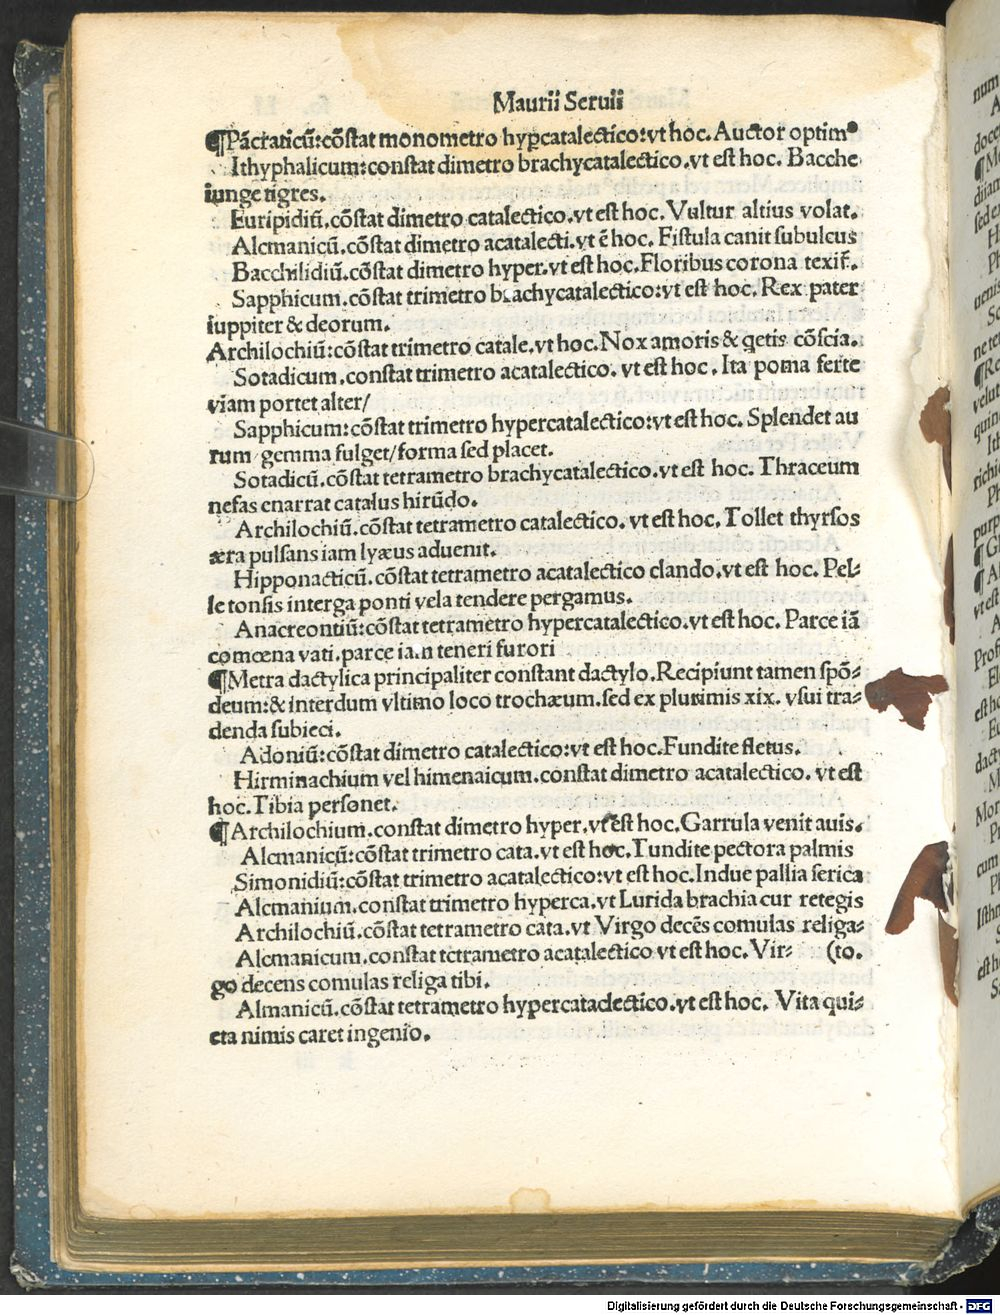 Maurii Seruii
¶Pācraticū:cōſtat monometro hypcatalectico:vt hoc. Auctor optimꝰ
Ithyphalicum:conſtat dimetro brachycatalectico.vt eſt hoc. Bacche
iunge tigres.
Euripiditū.cōſtat dimetro catalectico.vt eſt hoc. Vultur altius volat.
Alcmanicū.cōſtat dimetro acatalecti.vt ē hoc. Fiſtula canit ſubulcus
Bacchilidiū.cōſtat dimetro hyper.vt eſt hoc.Floribus corona texit̄.
Sapphicum.cōſtat trimetro brachycatalectico:vt eſt hoc. Rex pater
iuppiter & deorum.
Archilochiū:cōſtat trimetro catale.vt hoc.Nox amoris & q̄etis cōſcia.
Sotadicum.conſtat trimetro acatalectico. vt eſt hoc. Ita poma ferte
viam portet alter/
Sapphicum:cōſtat trimetro hypercatalectico:vt eſt hoc. Splendet au
rum gemma fulget/forma ſed placet.
Sotadicū.cōſtat tetrametro brachycatalectico.vt eſt hoc. Thraceum
nefas enarrat catalus hirūdo.
Archilochiū.cōſtat tetrametro catalectico. vt eſt hoc. Tollet thyrſos
æra pulſans iam lyæus aduenit.
Hipponacticū.cōſtat tetrametro acatalectico clando.vt eſt hoc. Pel⸗
le tonſis interga ponti vela tendere pergamus.
Anacreontiū:cōſtat tetrametro hypercatalectico.vt eſt hoc. Parce iā
comœna vati.parce iam teneri furori
¶Metra dactylica principaliter conſtant dactylo.Recipiunt tamen ſpō⸗
deum:& interdum vltimo loco trochæum.ſed ex plurimis xix. vſui tra⸗
denda ſubieci.
Adoniū:cōſtat dimetro catalectico:vt eſt hoc.Fundite fletus.
Hirminachium vel himenaicum.conſtat dimetro acatalectico. vt eſt
hoc.Tibia perſonet.
¶Archilochium.conſtat dimetro hyper.vt eſt hoc.Garrula venit auis.
Alcmanicū:cōſtat trimetro cata.vt eſt hoc.Tundite pectora palmis
Simonidiū:cōſtat trimetro acatalectico:vt eſt hoc.Indue pallia ſerica
Alcmanium.conſtat trimetro hyperca.vt Lurida brachia cur retegis
Archilochiū.cōſtat tetrametro cata.vt Virgo decēs comulas religa⸗
Alcmanicum.conſtat tetrametro acatalectico vt eſt hoc. Vir⸗ (to.
go decens comulas religa tibi.
Almanicū.cōſtat tetrametro hypercatadectico.vt eſt hoc. Vita qui⸗
eta nimis caret ingenio.
Digitalisierung gefördert durch die Deutsche Forschungsgemeinschaft - DFG